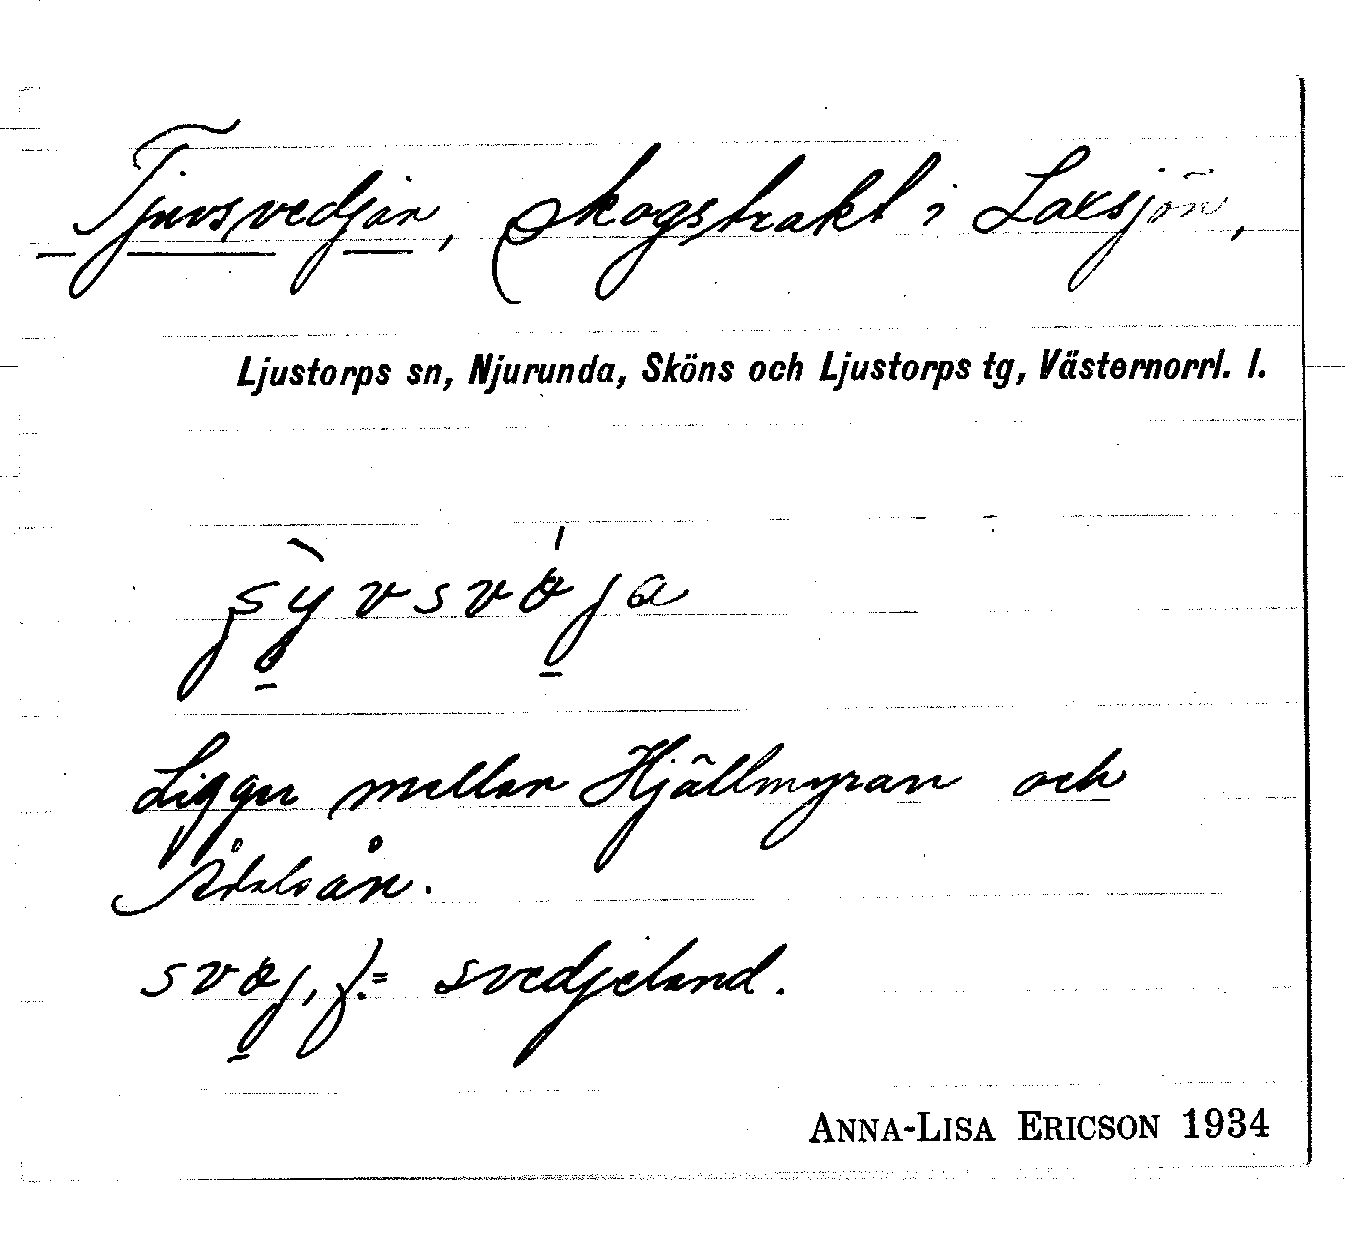 Tjuvsvedjan, skogstrakt i Laxsjön,
Ljustorps sn, Njurunda, Sköns och Ljustorps tg, Västernorrl. l.
Ligger mellan Hjällmyran och
Ådalsån.
f.= svedjeland.
ANNA-LISA ERICSON 1934